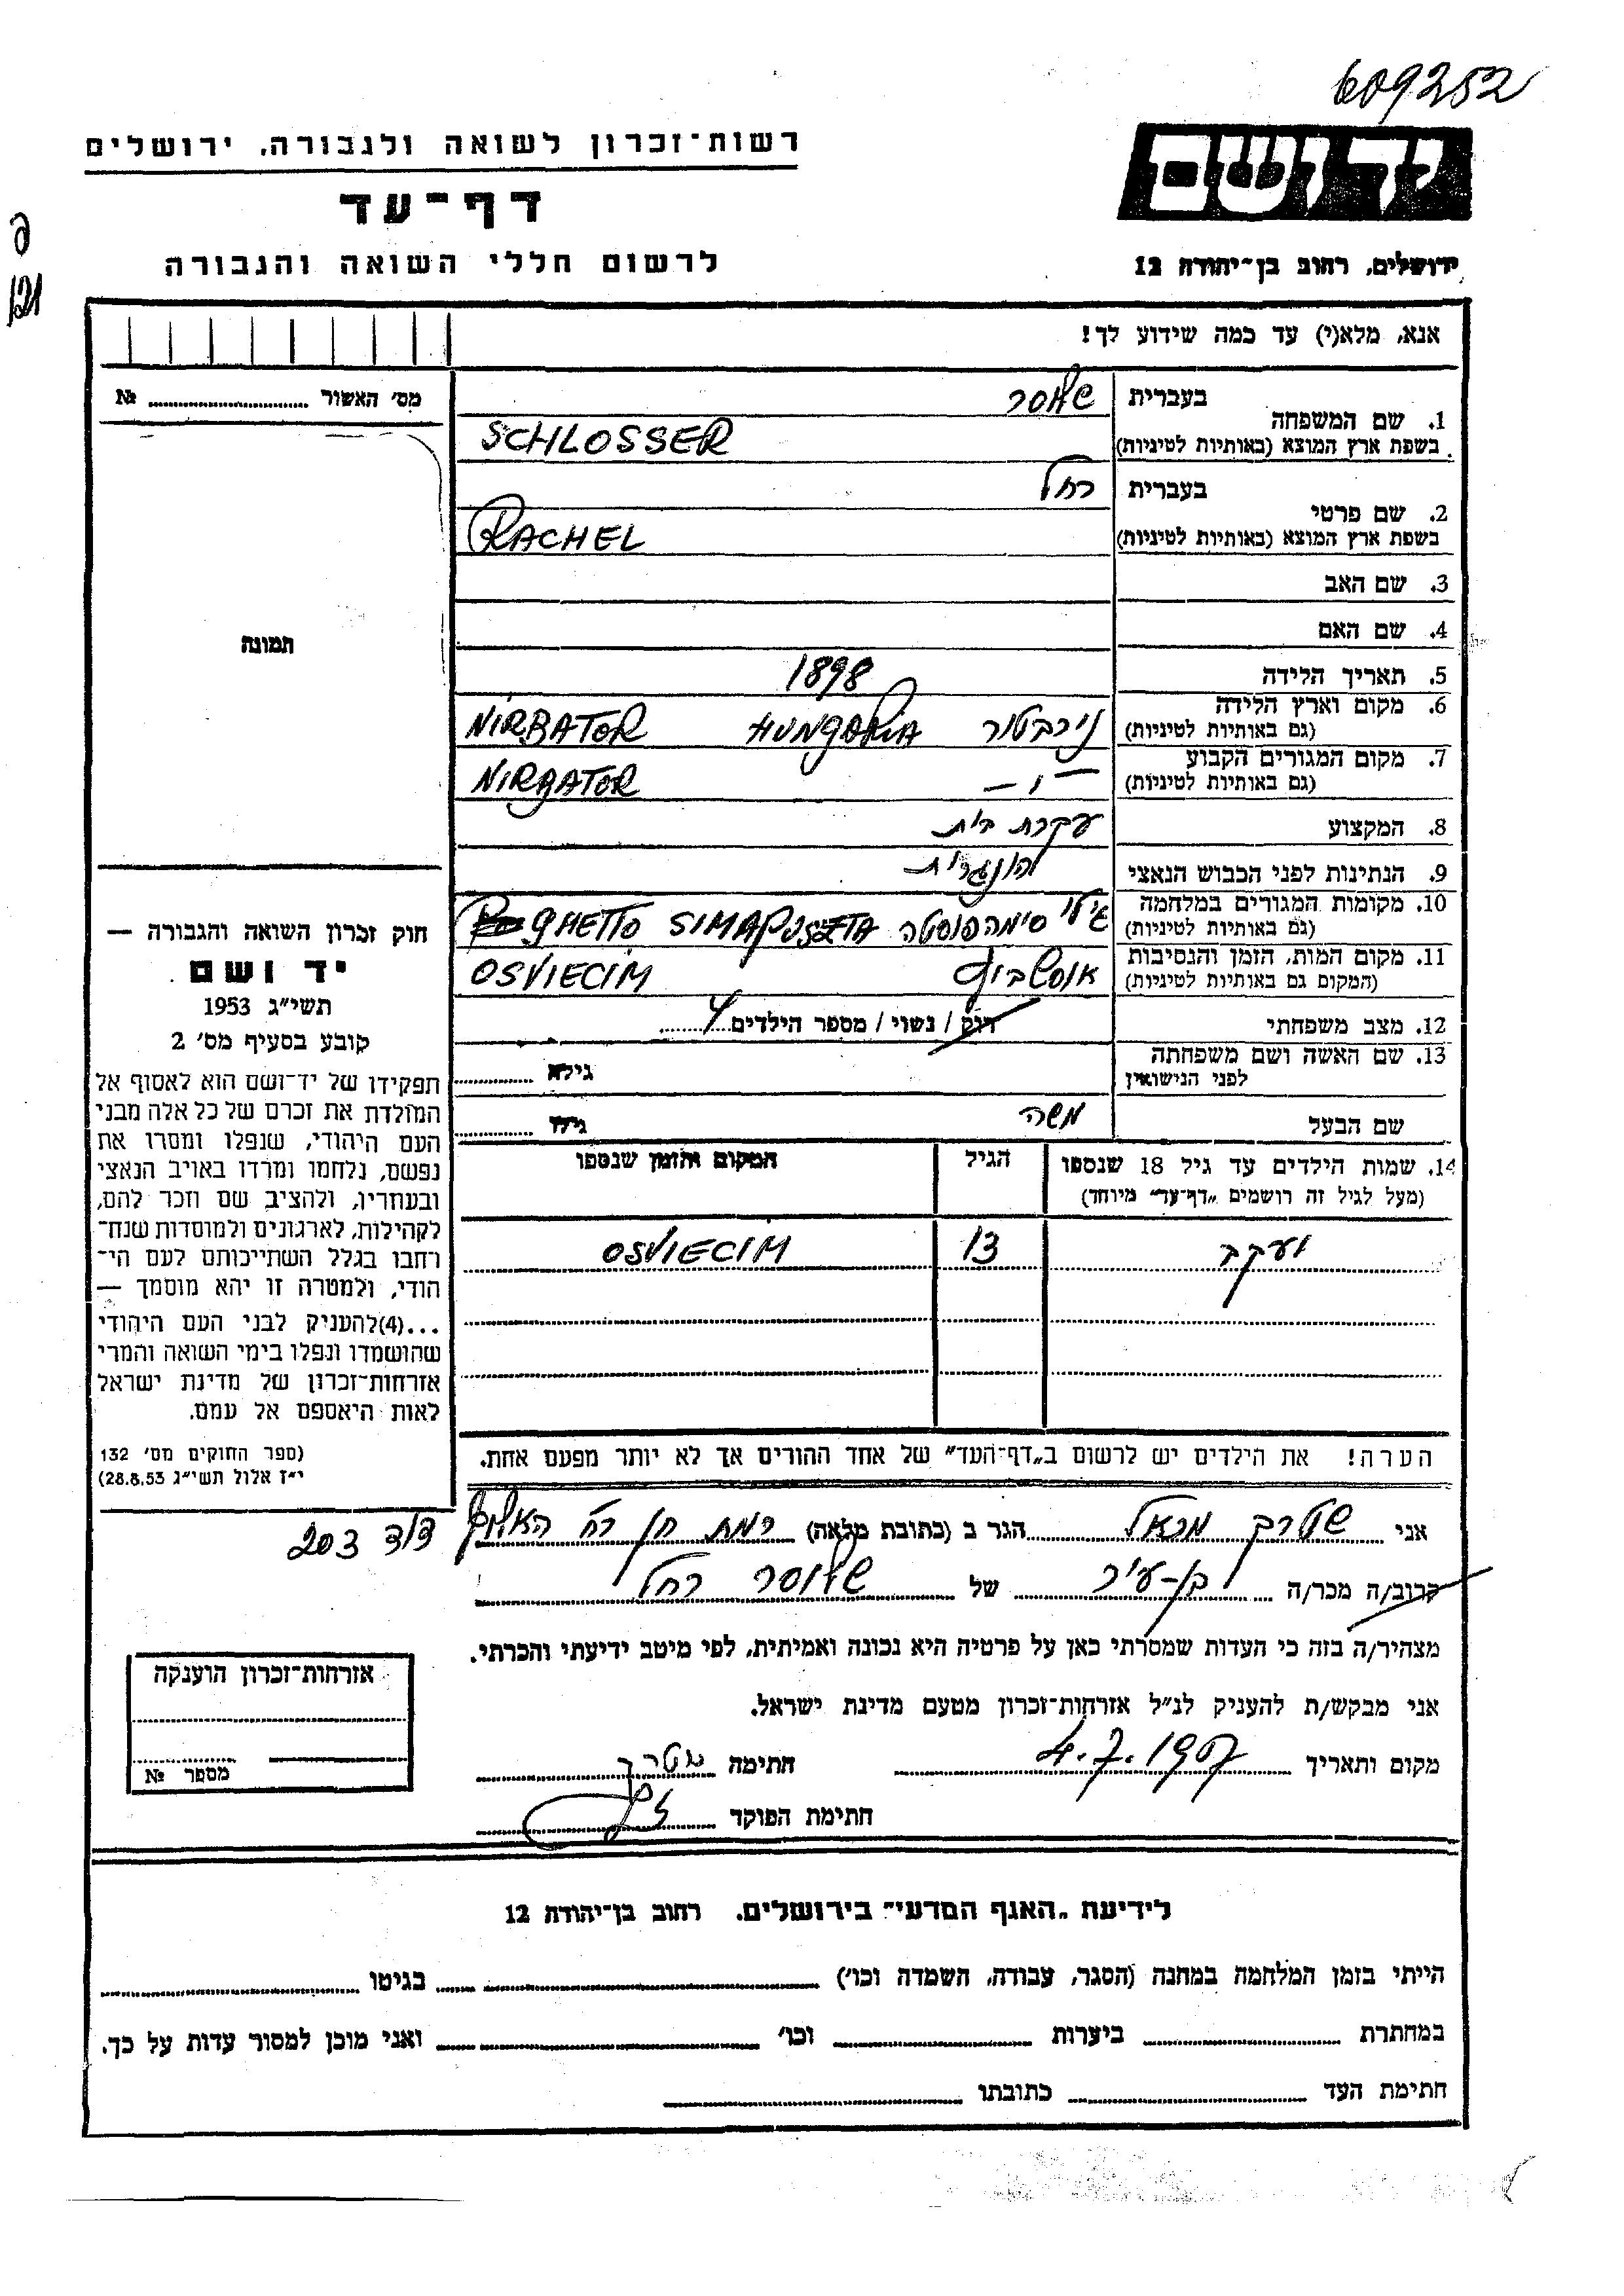 609252
ידושם
רשות־זכרון לשואה ולגבורה, ירושלים
דף־עד
לרשום חללי השואה והגבורה
ירושלים, רחוב בן־יהודה 12
121
אנא, מלא(י) עד כמה שידוע לך!
מס' האשור № 
תמונה
1. שם המשפחה בעברית שלוסר
בשפת ארץ המוצא (באותיות לטיניות) SCHLOSSER
2. שם פרטי בעברית רחל
בשפת ארץ המוצא (באותיות לטיניות) RACHEL
3. שם האב
4. שם האם
5. תאריך הלידה 1898
6. מקום וארץ הלידה (גם באותיות לטיניות) נירבטור HUNGARIA NIRBATOR
7. מקום המגורים הקבוע (גם באותיות לטיניות) —ו— NIRBATOR
8. המקצוע עקרת בית
9. הנתינות לפני הכבוש הנאצי הונגרית
10. מקומות המגורים במלחמה (גם באותיות לטיניות) סימהפוסטה GHETTO SIMAPUSZTA
11. מקום המות, הזמן והנסיבות (המקום גם באותיות לטיניות) אושביץ OSVIECIM
12. מצב משפחתי רוק / נשוי / מספר הילדים 4
13. שם האשה ושם משפחתה לפני הנישואין גילא
שם הבעל משה גילו
14. שמות הילדים עד גיל 18 שנספו הגיל המקום והזמן שנספו
(מעל לגיל זה רושמים "דף־עד" מיוחד)
יעקב 13 OSVIECIM
הערה! את הילדים יש לרשום ב"דף־העד" של אחד ההורים אך לא יותר מפעם אחת.
חוק זכרון השואה והגבורה —
יד ושם
תשי"ג 1953
קובע בסעיף מס' 2
תפקידו של יד־ושם הוא לאסוף אל
המולדת את זכרם של כל אלה מבני
העם היהודי, שנפלו ומסרו את
נפשם, נלחמו ומרדו באויב הנאצי
ובעוזריו, ולהציב שם וזכר להם,
לקהילות, לארגונים ולמוסדות שנח־
רחבו בגלל השתייכותם לעם הי־
הודי, ולמטרה זו יהא מוסמך —
...(4) להעניק לבני העם היהודי
שהושמדו ונפלו בימי השואה והמרי
אזרחות־זכרון של מדינת ישראל
לאות היאספם אל עמם.
(ספר החוקים מס' 132
י"ז אלול תשי"ג 28.8.53)
אני שטרן הגר ב (כתובת מלאה) רמת חן רח' האלוף
דוד 203
קרוב/ה מכר/ה בן-עיר של שלוסר רחל
מצהיר/ה בזה כי העדות שמסרתי כאן על פרטיה היא נכונה ואמיתית, לפי מיטב ידיעתי והכרתי.
אני מבקש/ת להעניק לנ"ל אזרחות־זכרון מטעם מדינת ישראל.
מקום ותאריך 4.7.1957 חתימה
חתימת הפוקד
אזרחות־זכרון הוענקה
מספר №
לידיעת "האגף המדעי" בירושלים. רחוב בן־יהודה 12
הייתי בזמן המלחמה במחנה (הסגר, עבודה, השמדה וכו') בגיטו
במחתרת ביערות וכו' ואני מוכן למסור עדות על כך.
חתימת העד כתובתו